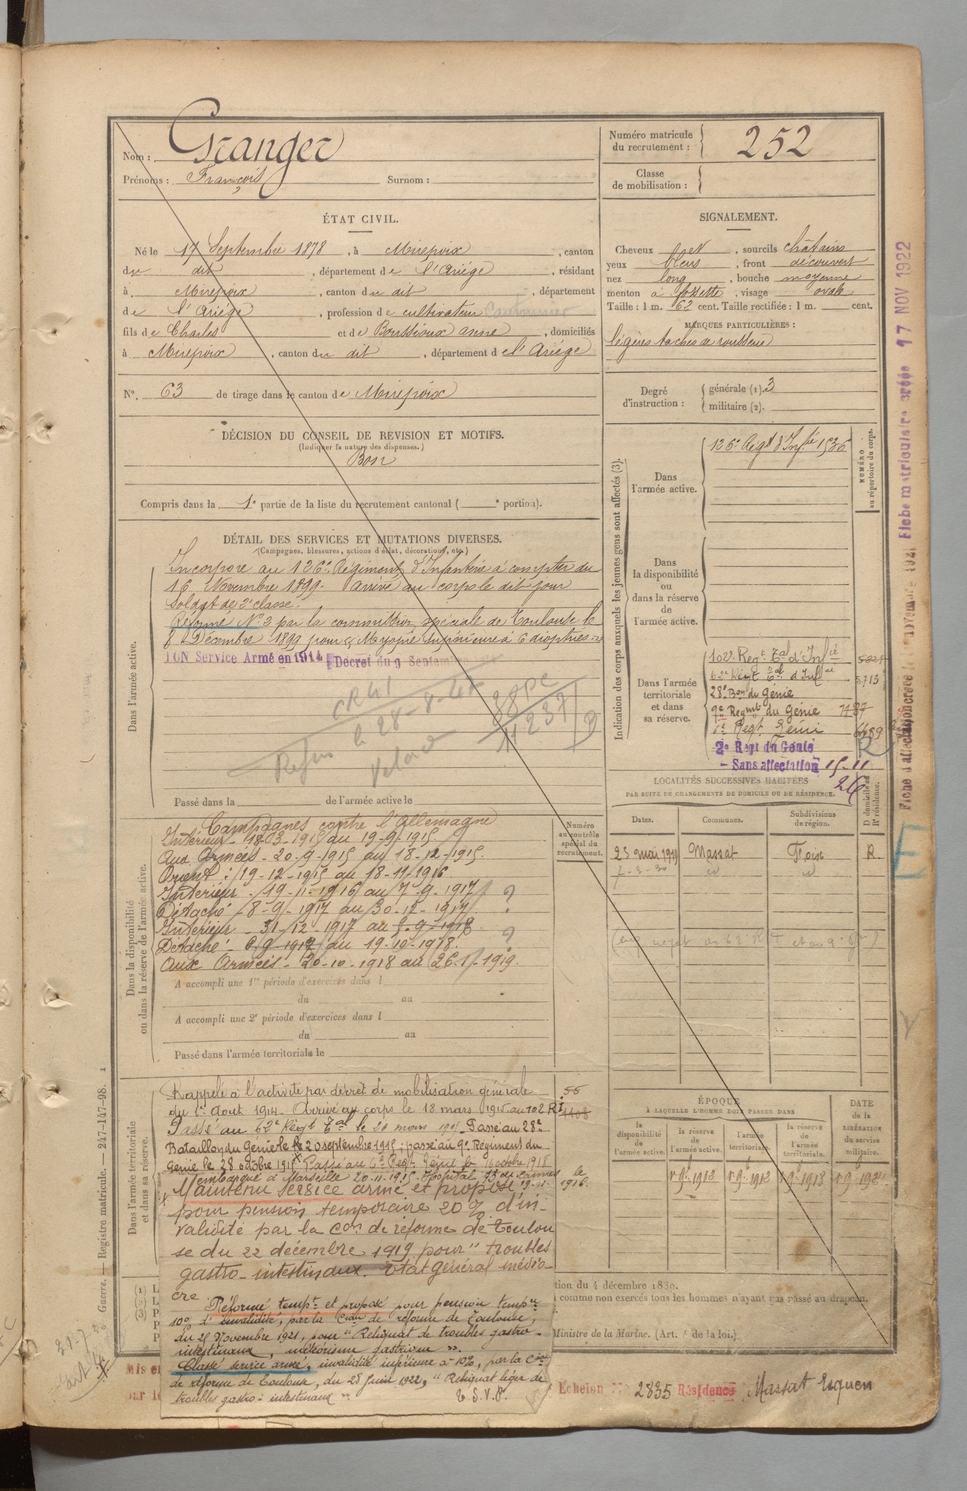 Nom : Granger
Prénoms : François Surnom :
Numéro matricule du recrutement : 252
Classe de mobilisation :
ÉTAT CIVIL.
Né le 17 Septembre 1878, à Mirepoix, canton
du dit, département de l'Ariège, résidant
à Mirepoix, canton du dit, département
de l'Ariège, profession de cultivateur Cantonnier
fils de Charles et de Boussioux anne, domiciliés
à Mirepoix, canton du dit, département de l'Ariège
N° 63 de tirage dans le canton de Mirepoix
DÉCISION DU CONSEIL DE REVISION ET MOTIFS.
(Indiquer la nature des dispenses.)
Bon
Compris dans la 1e partie de la liste du recrutement cantonal ( e portion).
SIGNALEMENT.
Cheveux , sourcils châtains
yeux bleus, front découvert
nez long, bouche moyenne
menton à fossette, visage ovale
Taille : 1 m. 62 cent. Taille rectifiée : 1 m. cent.
MARQUES PARTICULIÈRES :
légères taches de rousseur
Degré d'instruction : générale (1). 3
militaire (2).
DÉTAIL DES SERVICES ET MUTATIONS DIVERSES.
(Campagnes, blessures, actions d'éclat, décorations, etc.)
Dans l'armée active.
Incorporé au 126e Régiment d'Infanterie à compter du
16 Novembre 1899. Arrivé au corps le dit jour
soldat de 2e classe.
Réformé No 2 par la commission spéciale de Toulouse le
8 Décembre 1899 pour Myopie supérieure à 6 dioptries
ION Service Armé en 1914 Décret du 9 Septem
Passé dans la de l'armée active le
Dans la disponibilité ou dans la réserve de l'armée active.
Campagnes contre l'Allemagne
Intérieur - 18-03-1915 au 19-9-1915
Aux Armées - 20-9-1915 au 18-12-1915.
Orient : 19-12-1915 au 18-11-1916
Intérieur - 19-11-1916 au 7-9-1917 ?
Détaché - 8-9-1917 au 30-12-1917
Intérieur - 31-12-1917 au 5-9-1918
Détaché - 6-9-1917 au 19-10-1918. ?
Aux Armées - 20-10-1918 au 26-1-1919.
A accompli une 1re période d'exercices dans l
du au
A accompli une 2e période d'exercices dans l
du au
Passé dans l'armée territoriale le
Dans l'armée territoriale et dans sa réserve.
Rappelé à l'activité par décret de mobilisation générale
du 1er Août 1914. Arrivé au corps le 18 mars 1915 au 102 RI
Passé au 63e Régt Tal le 20 mars 1915 Passé au 28e
Bataillon du Génie le 20 septembre 1915; passé au 9e Régiment du
Génie le 28 octobre 191 Passé au 6e Regt Génie le 16 octobre 1918
embarqué à Marseille 20-11-1915
Maintenu service armé et proposé
pour pension temporaire 20 % d'in-
validité par la Con de réforme de Toulou
se du 22 décembre 1919 pour "troubles
gastro-intestinaux. État général médio-
cre.
Réformé tempre et proposé pour pension tempre
10% d'invalidité, par la Con de réforme de Toulouse,
du 25 Novembre 1921, pour "Reliquat de troubles gastro-
intestinaux, météorisme gastrique".
Classé service armé, invalidité inférieure à 10%, par la Con
de réforme de Toulouse, du 23 Juin 1922, "Reliquat léger de
troubles gastro-intestinaux"
T.S.V.P.
Indication des corps auxquels les jeunes gens sont affectés (3).
NUMÉRO au répertoire du corps.
Dans l'armée active.
126e Régt d'Infie 1536
Dans la disponibilité ou dans la réserve de l'armée active.
Dans l'armée territoriale et dans sa réserve.
102e Regt Tal d'Infie
63e Régt Tal d'Infie 5713
28e Bon du Génie
9e Regmt du Génie
Regt Génie
2e Regt du Génie
- Sans affectation 15-11-26
LOCALITÉS SUCCESSIVES HABITÉES
PAR SUITE DE CHANGEMENTS DE DOMICILE OU DE RÉSIDENCE.
Numéro au contrôle spécial du recrutement.
Dates. Communes. Subdivisions de région. D. domicile ou R. résidence.
23 mai 1911 Massat Foix R
ÉPOQUE
À LAQUELLE L'HOMME DOIT PASSER DANS
DATE de la LIBÉRATION du service militaire.
la disponibilité de l'armée active. la réserve de l'armée active. l'armée territoriale. la réserve de l'armée territoriale.
tion du 4 décembre 1830.
comme non exercés tous les hommes n'ayant pas passé au drapeau,
Ministre de la Marine. (Art. de la loi.)
Echelon No 2835 Résidence Massat
Guerre. — Registre matricule. — 247-147-98.
Fiche matriculaire créée 17 NOV 1922